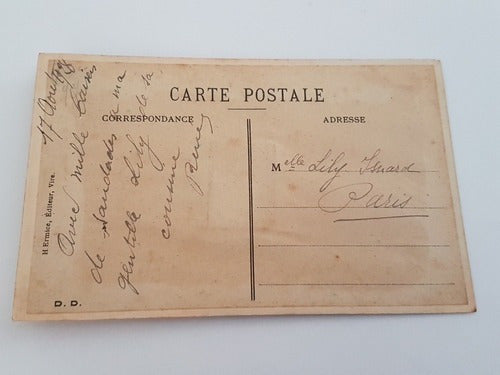 CARTE POSTALE
CORRESPONDANCE
ADRESSE
17 Avril
Avec mille baisers
de
gentille Lily de sa
cousine
Renée
Melle Lily Isnard
Paris
H Ermice, Éditeur, Vire.
D. D.